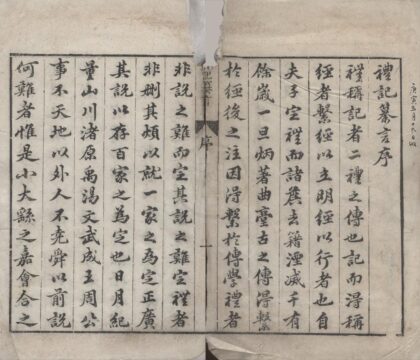 禮記纂言序
禮稱記者二禮之傳也記而得稱
經者繫經以立明經以行者也自
夫子定禮而諸侯去籍湮滅千有
餘歲一旦炳著曲臺古之傳得繫
於經後之注因得繫於傳學禮者
序
一
非說之難而定其說之難定禮者
非刪其煩以就一家之為定正廣
其說以存百家之為定也日月紀
量山川渚原禹湯文武成王周公
事不天地以外人不堯舜以前說
何難者惟是小大繇之嘉會合之